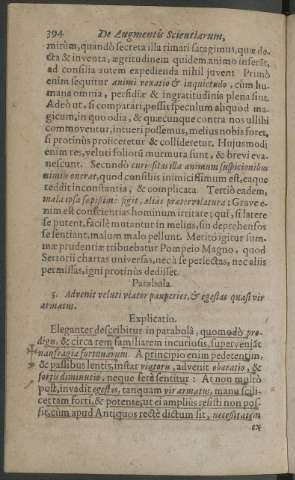 394 De Augmentis Scientiarum,
mirùm, quandò secreta illa rimari satagimus, quæ de-
tecta & inventa, ægritudinem quidem animo inferāt,
ad consilia autem expedienda nihil juvent Primò
enim sequitur animi vexatio & inquietudo, cùm hu-
mana omnia, perfidiæ & ingratitudinis plena sint.
Adeò ut, si comparari, possit speculum aliquod ma-
gicum, in quo odia, & quæcunque contra nos ullibi
commoventur, intueri possemus, melius nobis foret,
si protinùs proiiceretur & collideretur. Hujusmodi
enim res, veluti foliorū murmura sunt, & brevi eva-
nescunt. Secundò curiositas illa animum suspicionibus
nimiis onerat, quod consiliis inimicissimum est, eaque
reddit inconstantia, & complicata. Tertiò eadem,
mala ipsa sæpissimè figit, aliàs prætervolatura: Grave e-
nim est conscientias hominum irritare; qui, si latere
se putent, facilè mutantur in melius, sin deprehensos
se sentiant, malum malo pellunt. Meritò igitur sum-
mæ prudentiæ tribuebatur Pompeio Magno, quod
Sertorii chartas universas, nec à se perlectas, nec aliis
permissas, igni protinùs dedisset.
Parabola
5. Advenit veluti viator pauperies, & egestas quasi vir
armatus.
Explicatio.
Eleganter describitur in parabolâ, quomodò pro-
digis, & circa rem familiarem incuriosis, superveniāt
naufragia fortunarum. A principio enim pedetentim,
& passibus lentis, instar viatoris, advenit obæratio, &
sortis diminutio, neque ferè sentitur: At non multò
pòst, invadit egestas, tanquam vir armatus, manu scili-
cet tam forti, & potente, ut ei ampliùs resisti non pos-
sit, cùm apud Antiquos rectè dictum sit, necessitatem
ex